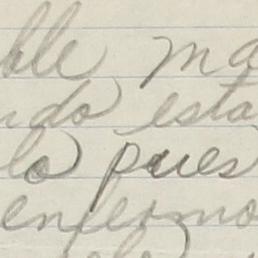 ble ma
ndo esta
lo pues
enfermo